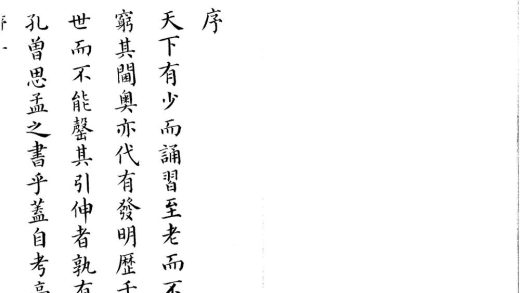 序
天下有少而誦習至老而不
窮其閫奧亦代有發明歷千
世而不能罄其引伸者孰有
孔曾思孟之書乎蓋自考亭
序一